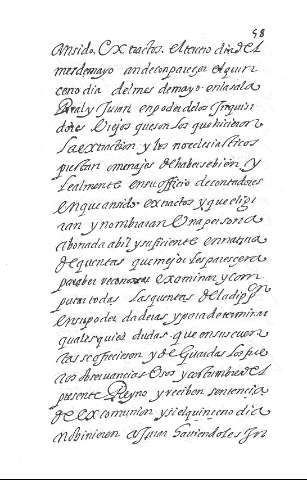 58
ansido. Extractos. el terceno dia de el
mes de mayo an de conpareçer el quin
ceno dia del mes de mayo en la sala
Real y Juran en poder de los Inquisi
dores Viejos que son los que hicieron
la extraccion y los no eclesiasticos
prestan omenajes de haberse bien y
lealmente en su officio de contadores
en que an sido extractos y que eligi
ran y nombraran Una persona
abonada abil y sufiçiente en materia
de quentas que mejor les pareçera
para ber reconocer examinar y com
putar todas las quentas de la dip.on
en su poder dadas y para determinar
qualesquiera dudas que en sus cuen
tas se offrecieron y de Guardar los fue
ros observancias Usos y costumbres de el
presente Reyno y reciben sentencia
de excomunion y si el quinceno dia
no binieren a Jurar haviendoles